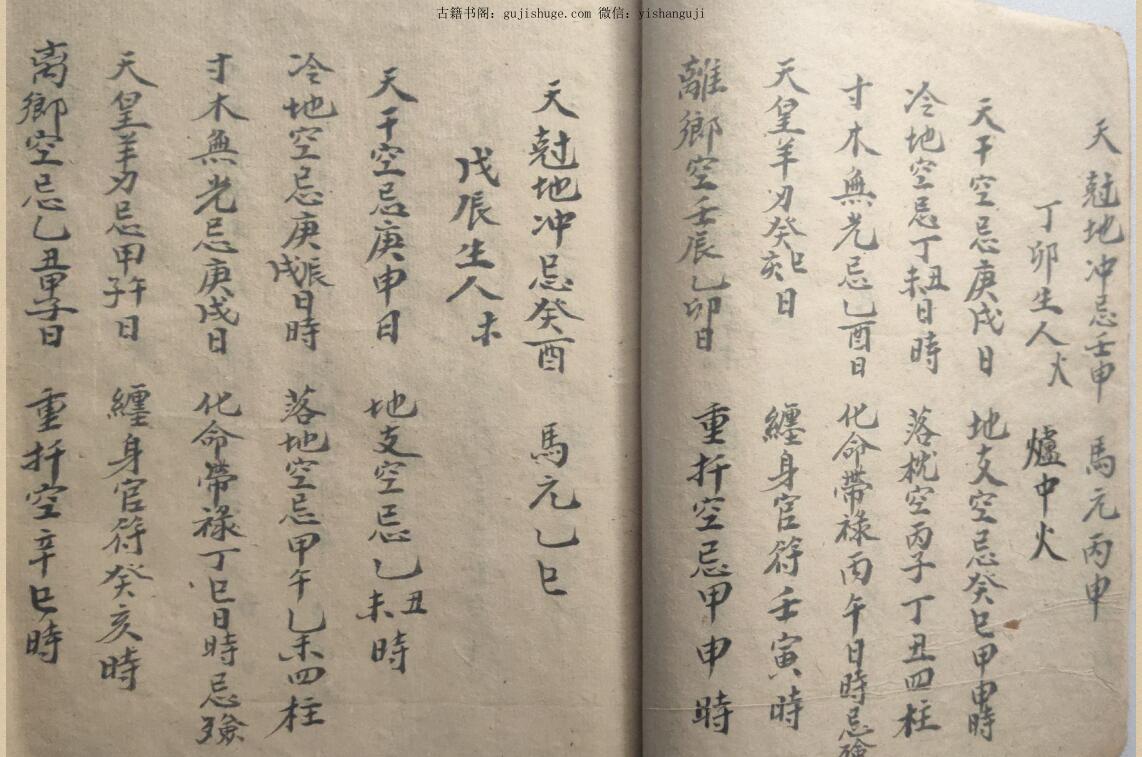 古籍书阁：gujishuge.com 微信：yishanguji
天尅地冲忌壬申 馬元丙申
丁卯生人火 爐中火
天干空忌庚戌日 地支空忌癸巳甲申時
冷地空忌丁丑未日時 落枕空丙子丁丑四柱
寸木無光忌乙酉日 化命帶禄丙午日時忌殮
天皇羊刃癸巳亥日 纏身官符壬寅時
離鄉空壬辰乙卯日 重扦空忌甲申時
天尅地冲忌癸酉 馬元乙巳
戊辰生人木
天干空忌庚申日 地支空忌乙丑未時
冷地空忌庚辰戌日時 落地空忌甲午乙未四柱
寸木無光忌庚戌日 化命帶祿丁巳日時忌殮
天皇羊刃忌甲午子日 纏身官符癸亥時
离鄉空忌乙丑甲子日 重扦空辛巳時